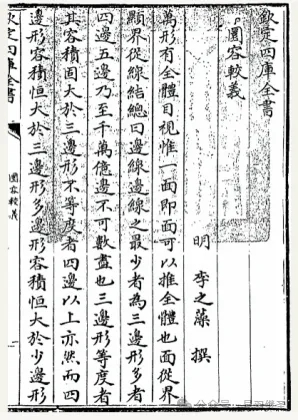 欽定四庫全書
圜容較義
明 李之藻 撰
萬形有全體目視惟一面即面可以推全體也面從界
顯界從線結總曰邊線邊線之最少者為三邊形多者
四邊五邊乃至千萬億邊不可數盡也三邊形等度者
其容積固大於三邊形不等度者四邊以上亦然而四
邊形容積恒大於三邊形多邊形容積恒大於少邊形
欽定四庫全書
圜容較義
公众号